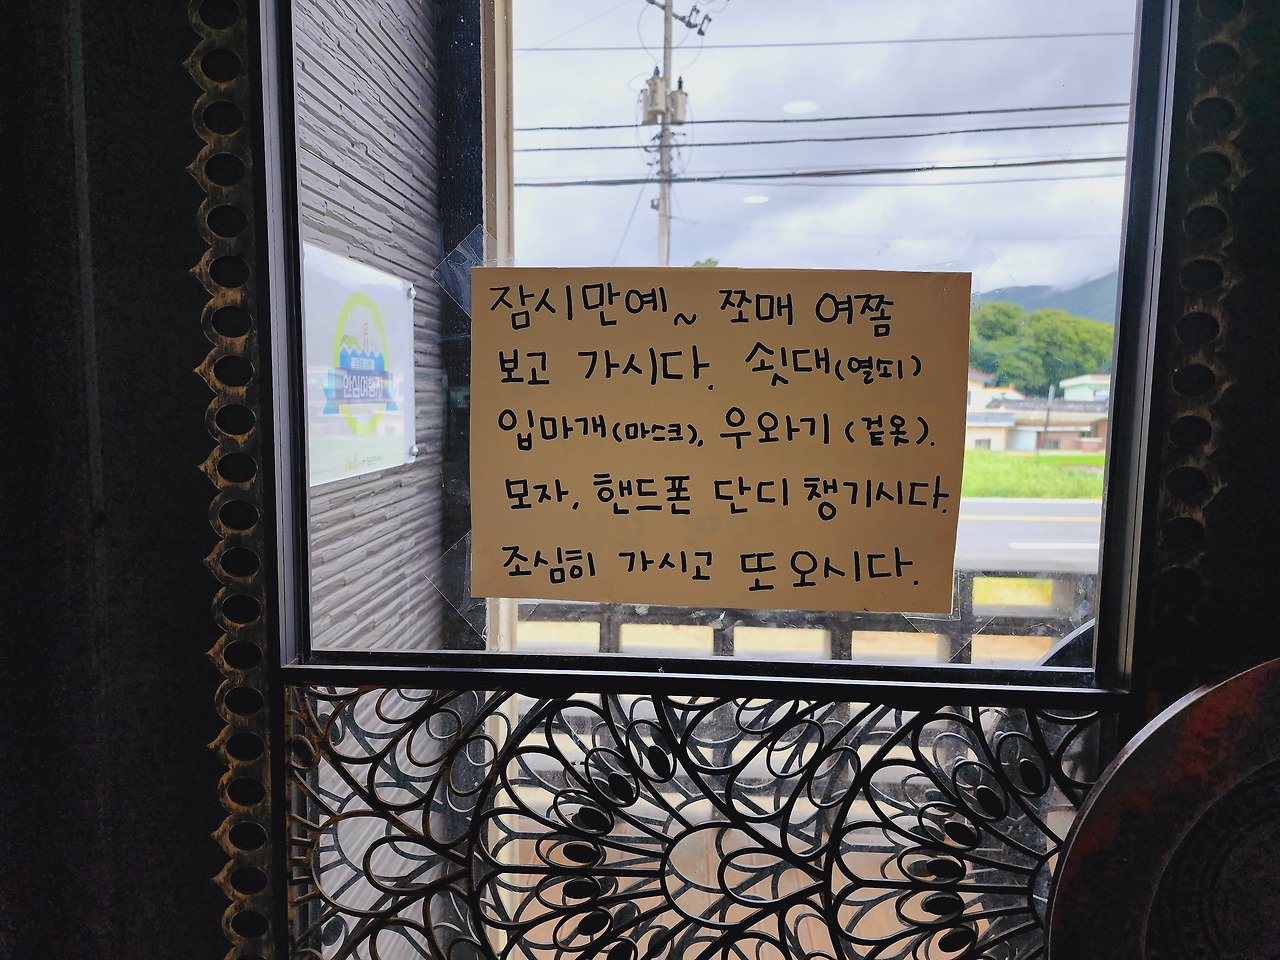 잠시만예~ 쪼매 여쫌
보고 가시다. 쇳대(열쇠)
입마개(마스크), 우와기 (겉옷).
모자, 핸드폰 단디 챙기시다.
조심히 가시고 또 오시다.
안심여행지